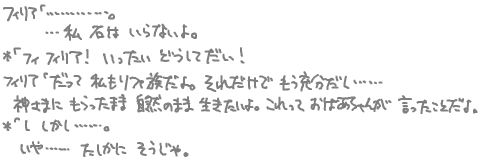 フィリア「…………。
…私 石は いらないよ。
*「フィ フィリア！ いったい どうしてだい！
フィリア「だって 私もリフ族だよ。それだけで もう充分だし……
神さまに もらったまま 自然のまま 生きたいよ。これって おばあちゃんが 言ったことだよ。
*「し しかし……。
いや…… たしかに そうじゃ。